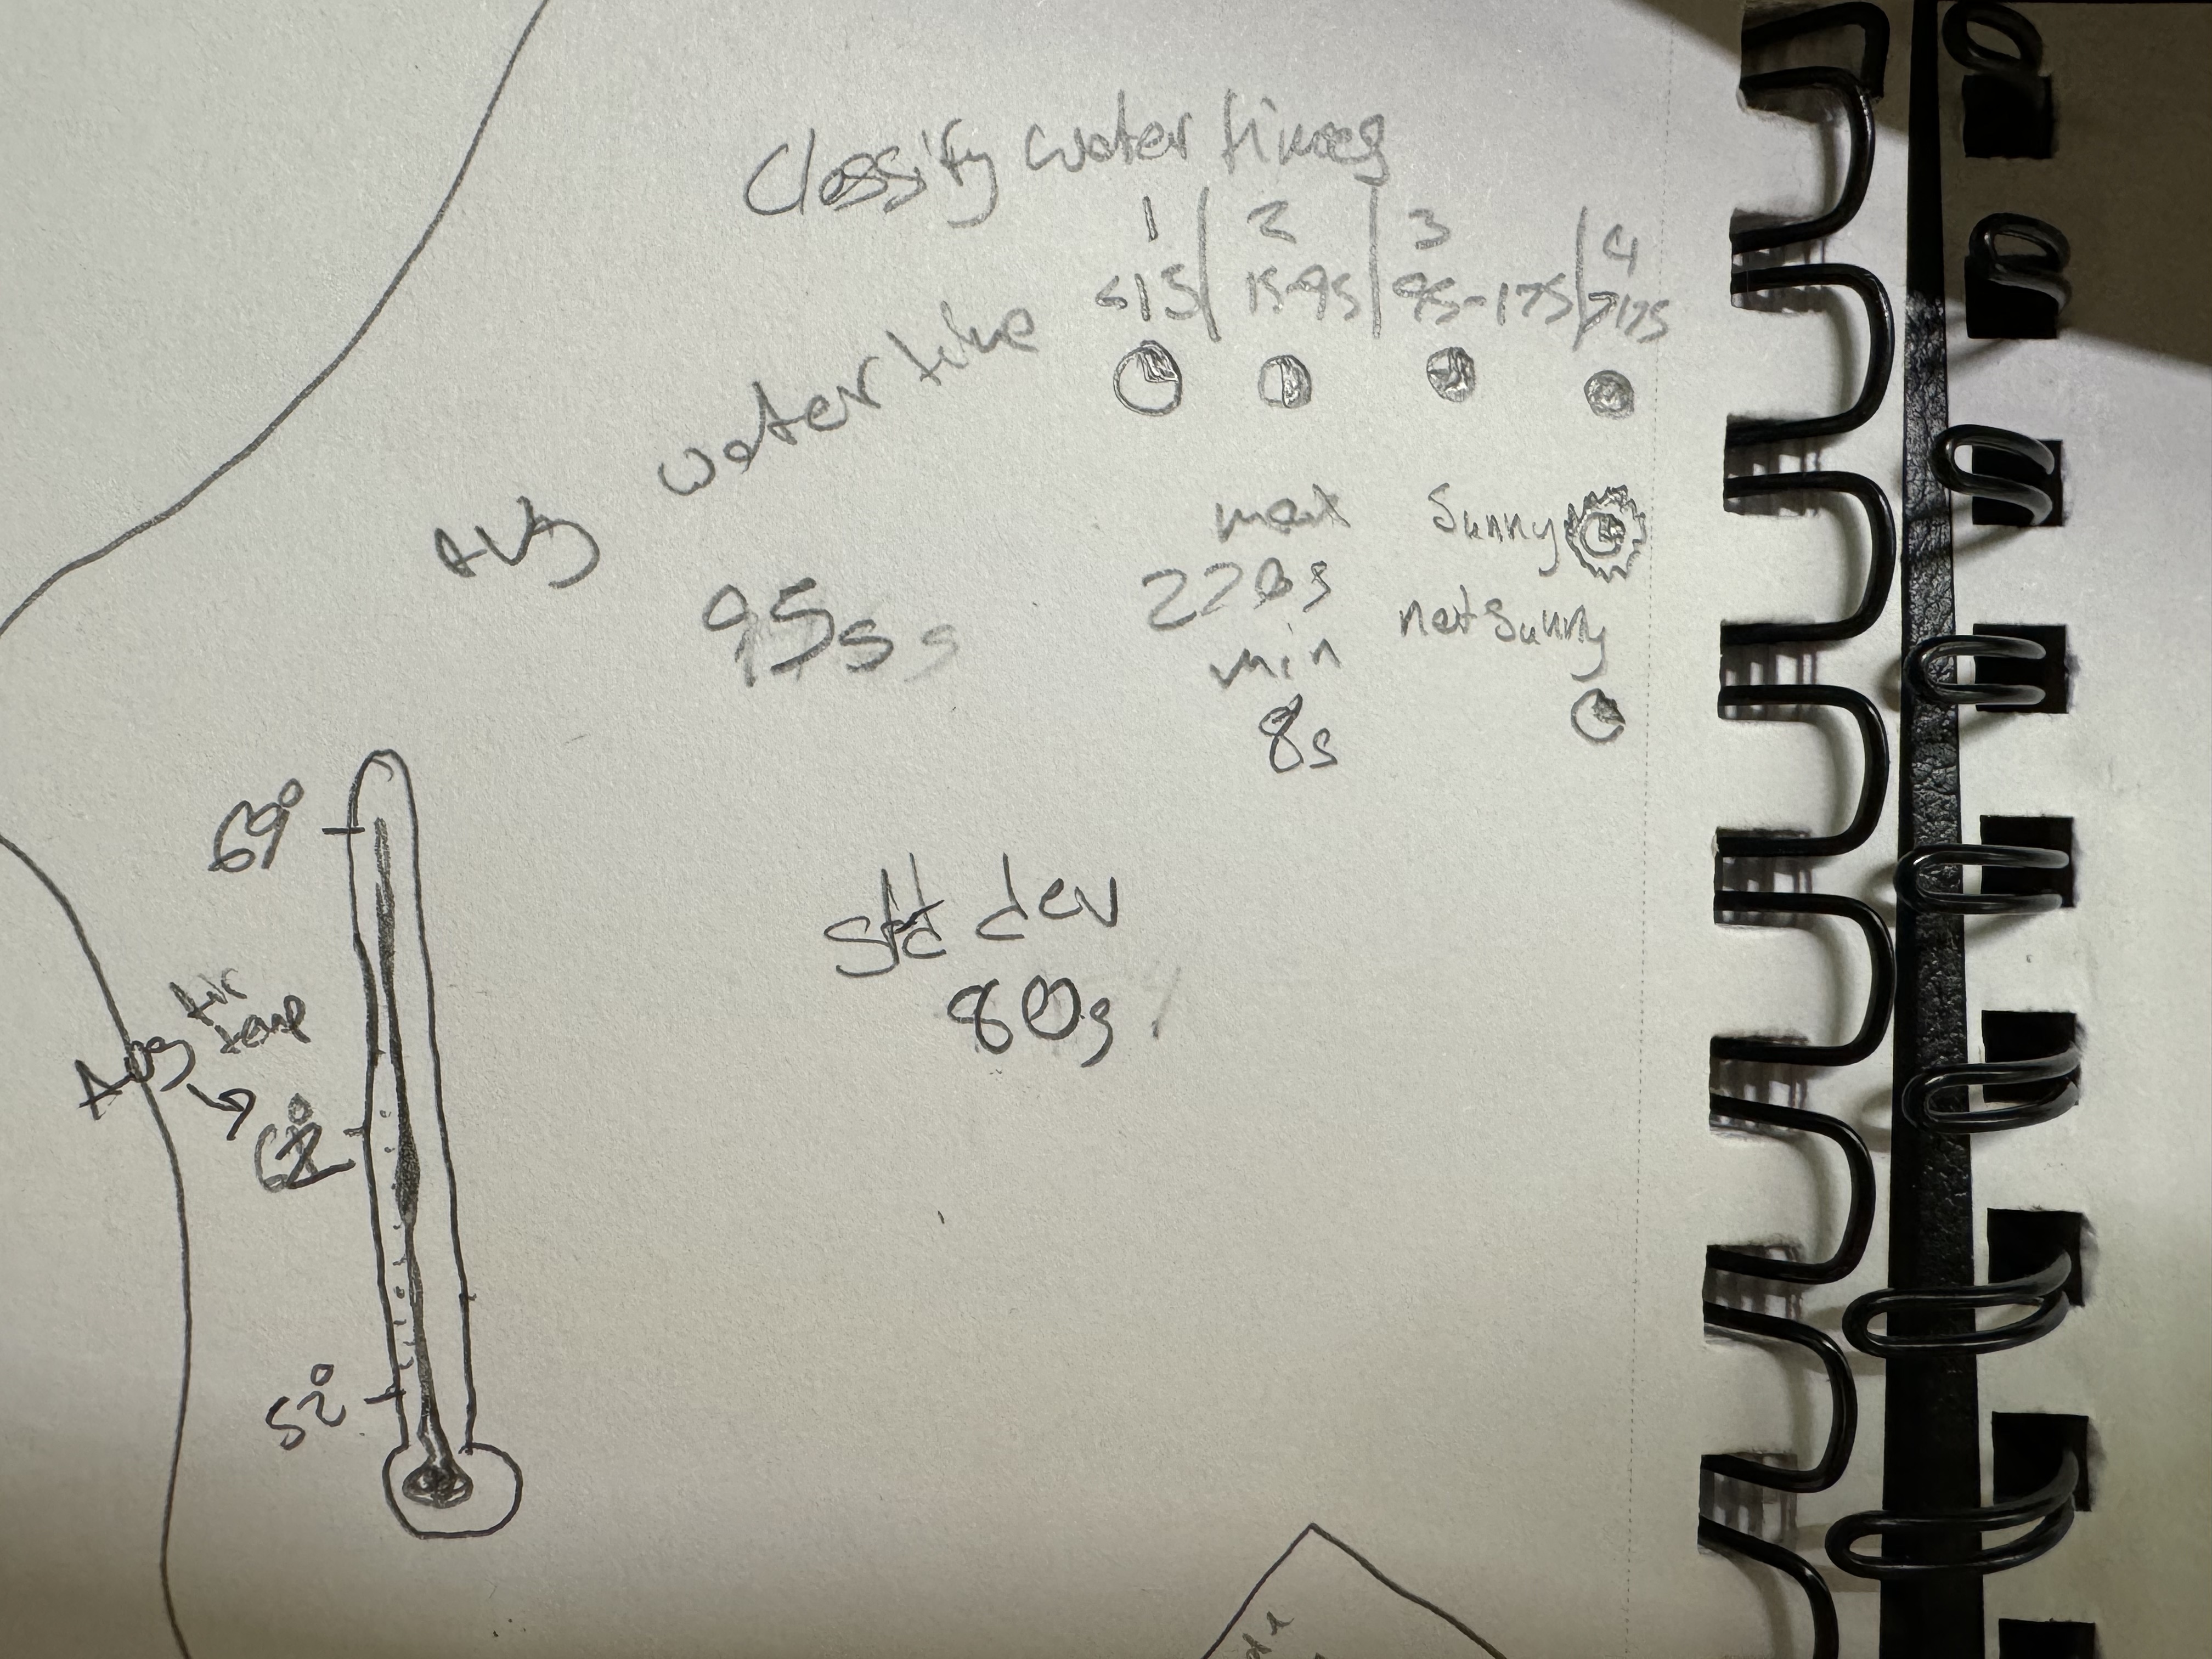 Classify water times
1 | 2 | 3 | 4
<15 | 15-95 | 95-175 | >175
Avg water time
95s s
max
220s
min
8s
Sunny
not Sunny
std dev
80s
69°
Avg air temp →
62°
52°